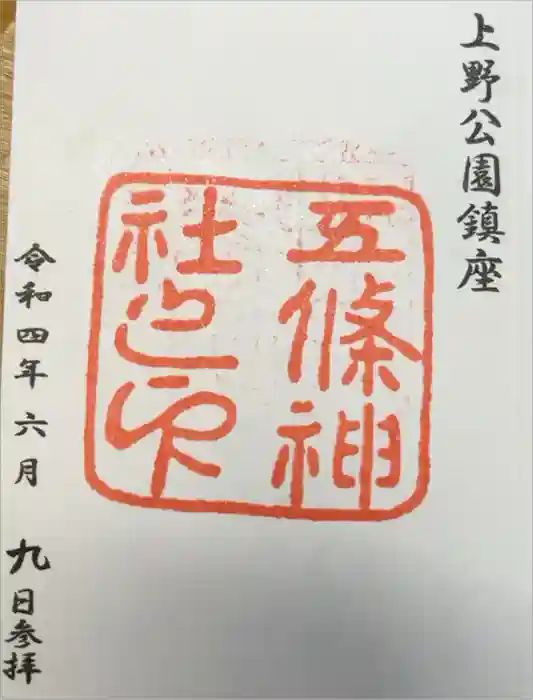 上野公園鎮座
五條神
社之印
令和四年六月九日参拝